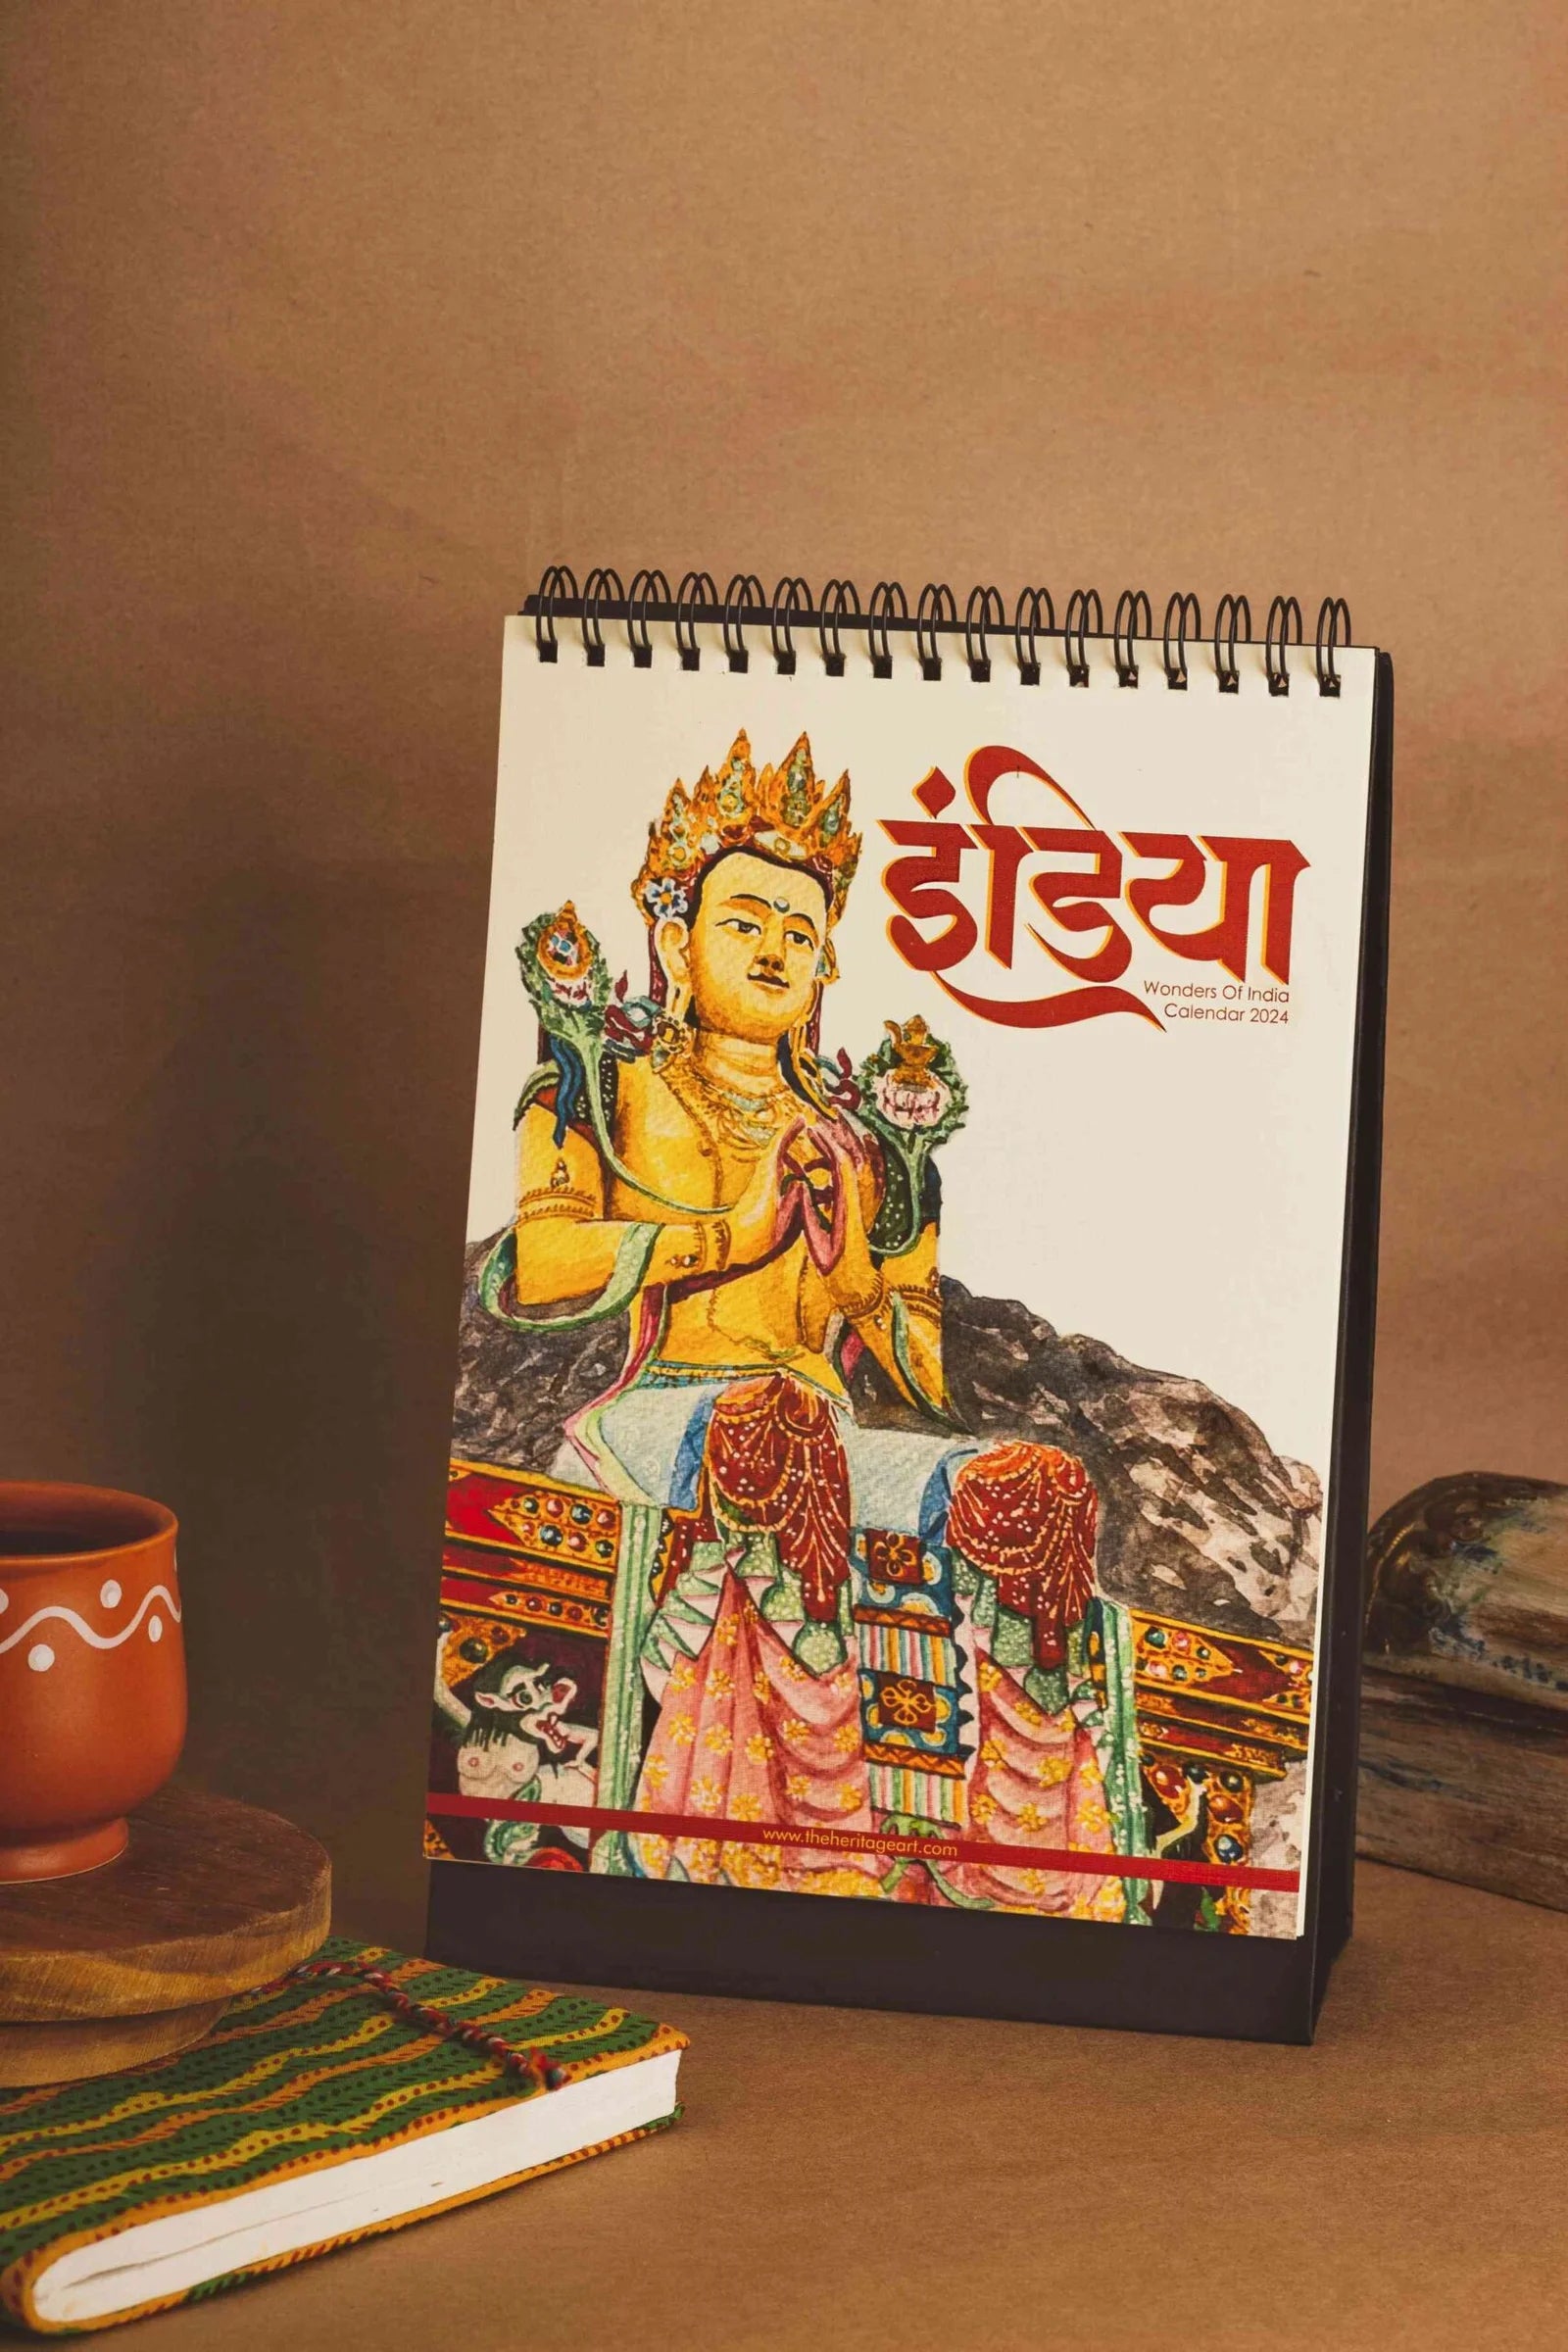 इंडिया
Wonders Of India
Calendar 2024
www.theheritageart.com